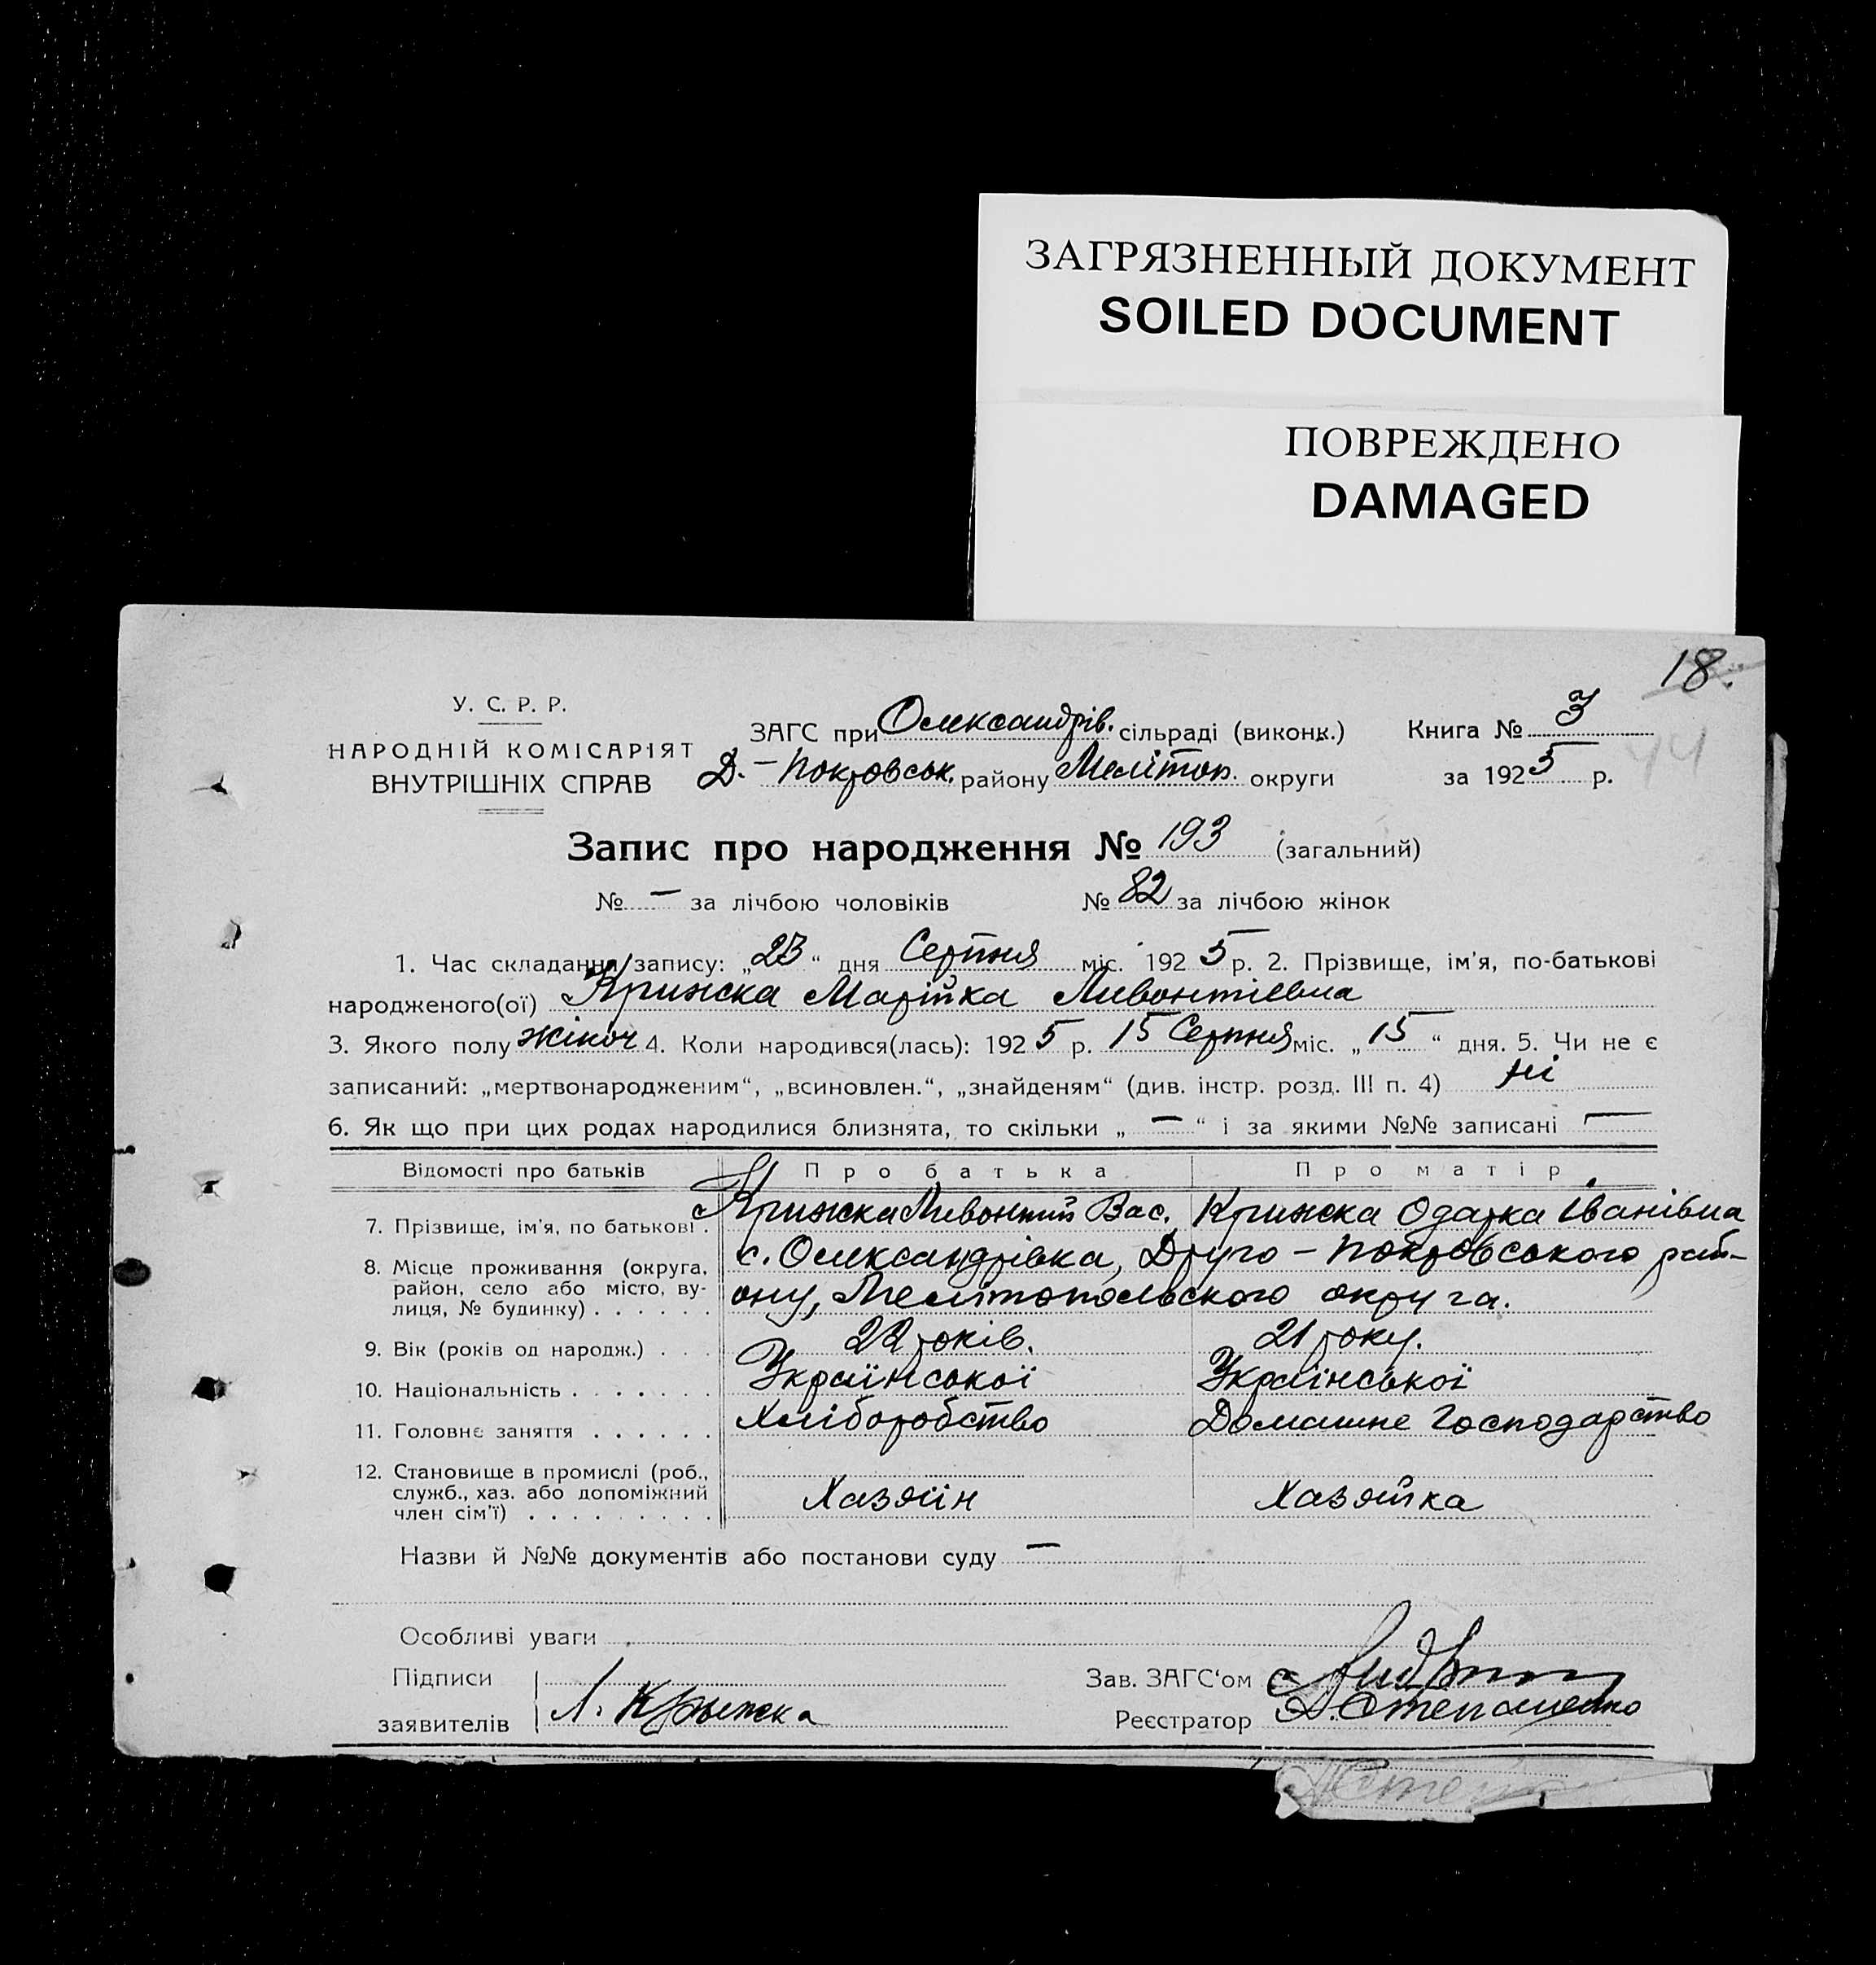 ЗАГРЯЗНЕННЫЙ ДОКУМЕНТ
SOILED DOCUMENT
ПОВРЕЖДЕНО
DAMAGED
18.
44
У. С. Р. Р.
НАРОДНІЙ КОМІСАРІЯТ
ВНУТРІШНІХ СПРАВ
ЗАГС при Олександрів. сільраді (виконк.) Книга № 3
Д.-Покровськ. району Мелітоп. округи за 1925 р.
Запис про народження № 193 (загальний)
№ — за лічбою чоловіків № 82 за лічбою жінок
1. Час складання запису: „23“ дня Серпня міс. 1925 р. 2. Прізвище, ім'я, по-батькові
народженого(ої) Крижска Марійка Ливонтіевна
3. Якого полу жіноч 4. Коли народився(лась): 1925 р. 15 Серпня міс. „15“ дня. 5. Чи не є
записаний: „мертвонародженим“, „всиновлен.“, „знайденям“ (див. інстр. розд. III п. 4) ні
6. Як що при цих родах народилися близнята, то скільки „—“ і за якими №№ записані —
Відомості про батьків Про батька Про матір
7. Прізвище, ім'я, по батькові . Крижска Ливонтий Вас. Крижска Одарка Іванівна
8. Місце проживання (округа, район, село або місто, вулиця, № будинку) . . . . . .
с. Олександрівка, Друго-Покровського рай-
ону, Мелітопольского округа.
9. Вік (років од народж.) . . . 22 років. 21 року.
10. Національність . . . . . . . Української Української
11. Головнє заняття . . . . . . Хліборобство Домашне Господарство
12. Становище в промислі (роб.,
служб., хаз. або допоміжний
член сім'ї) . . . . . . . . . Хазяїн Хазяйка
Назви й №№ документів або постанови суду —
Особливі уваги
Підписи
заявителів Л. Крыжска
Зав. ЗАГС'ом
Реєстратор Д. Степаненко